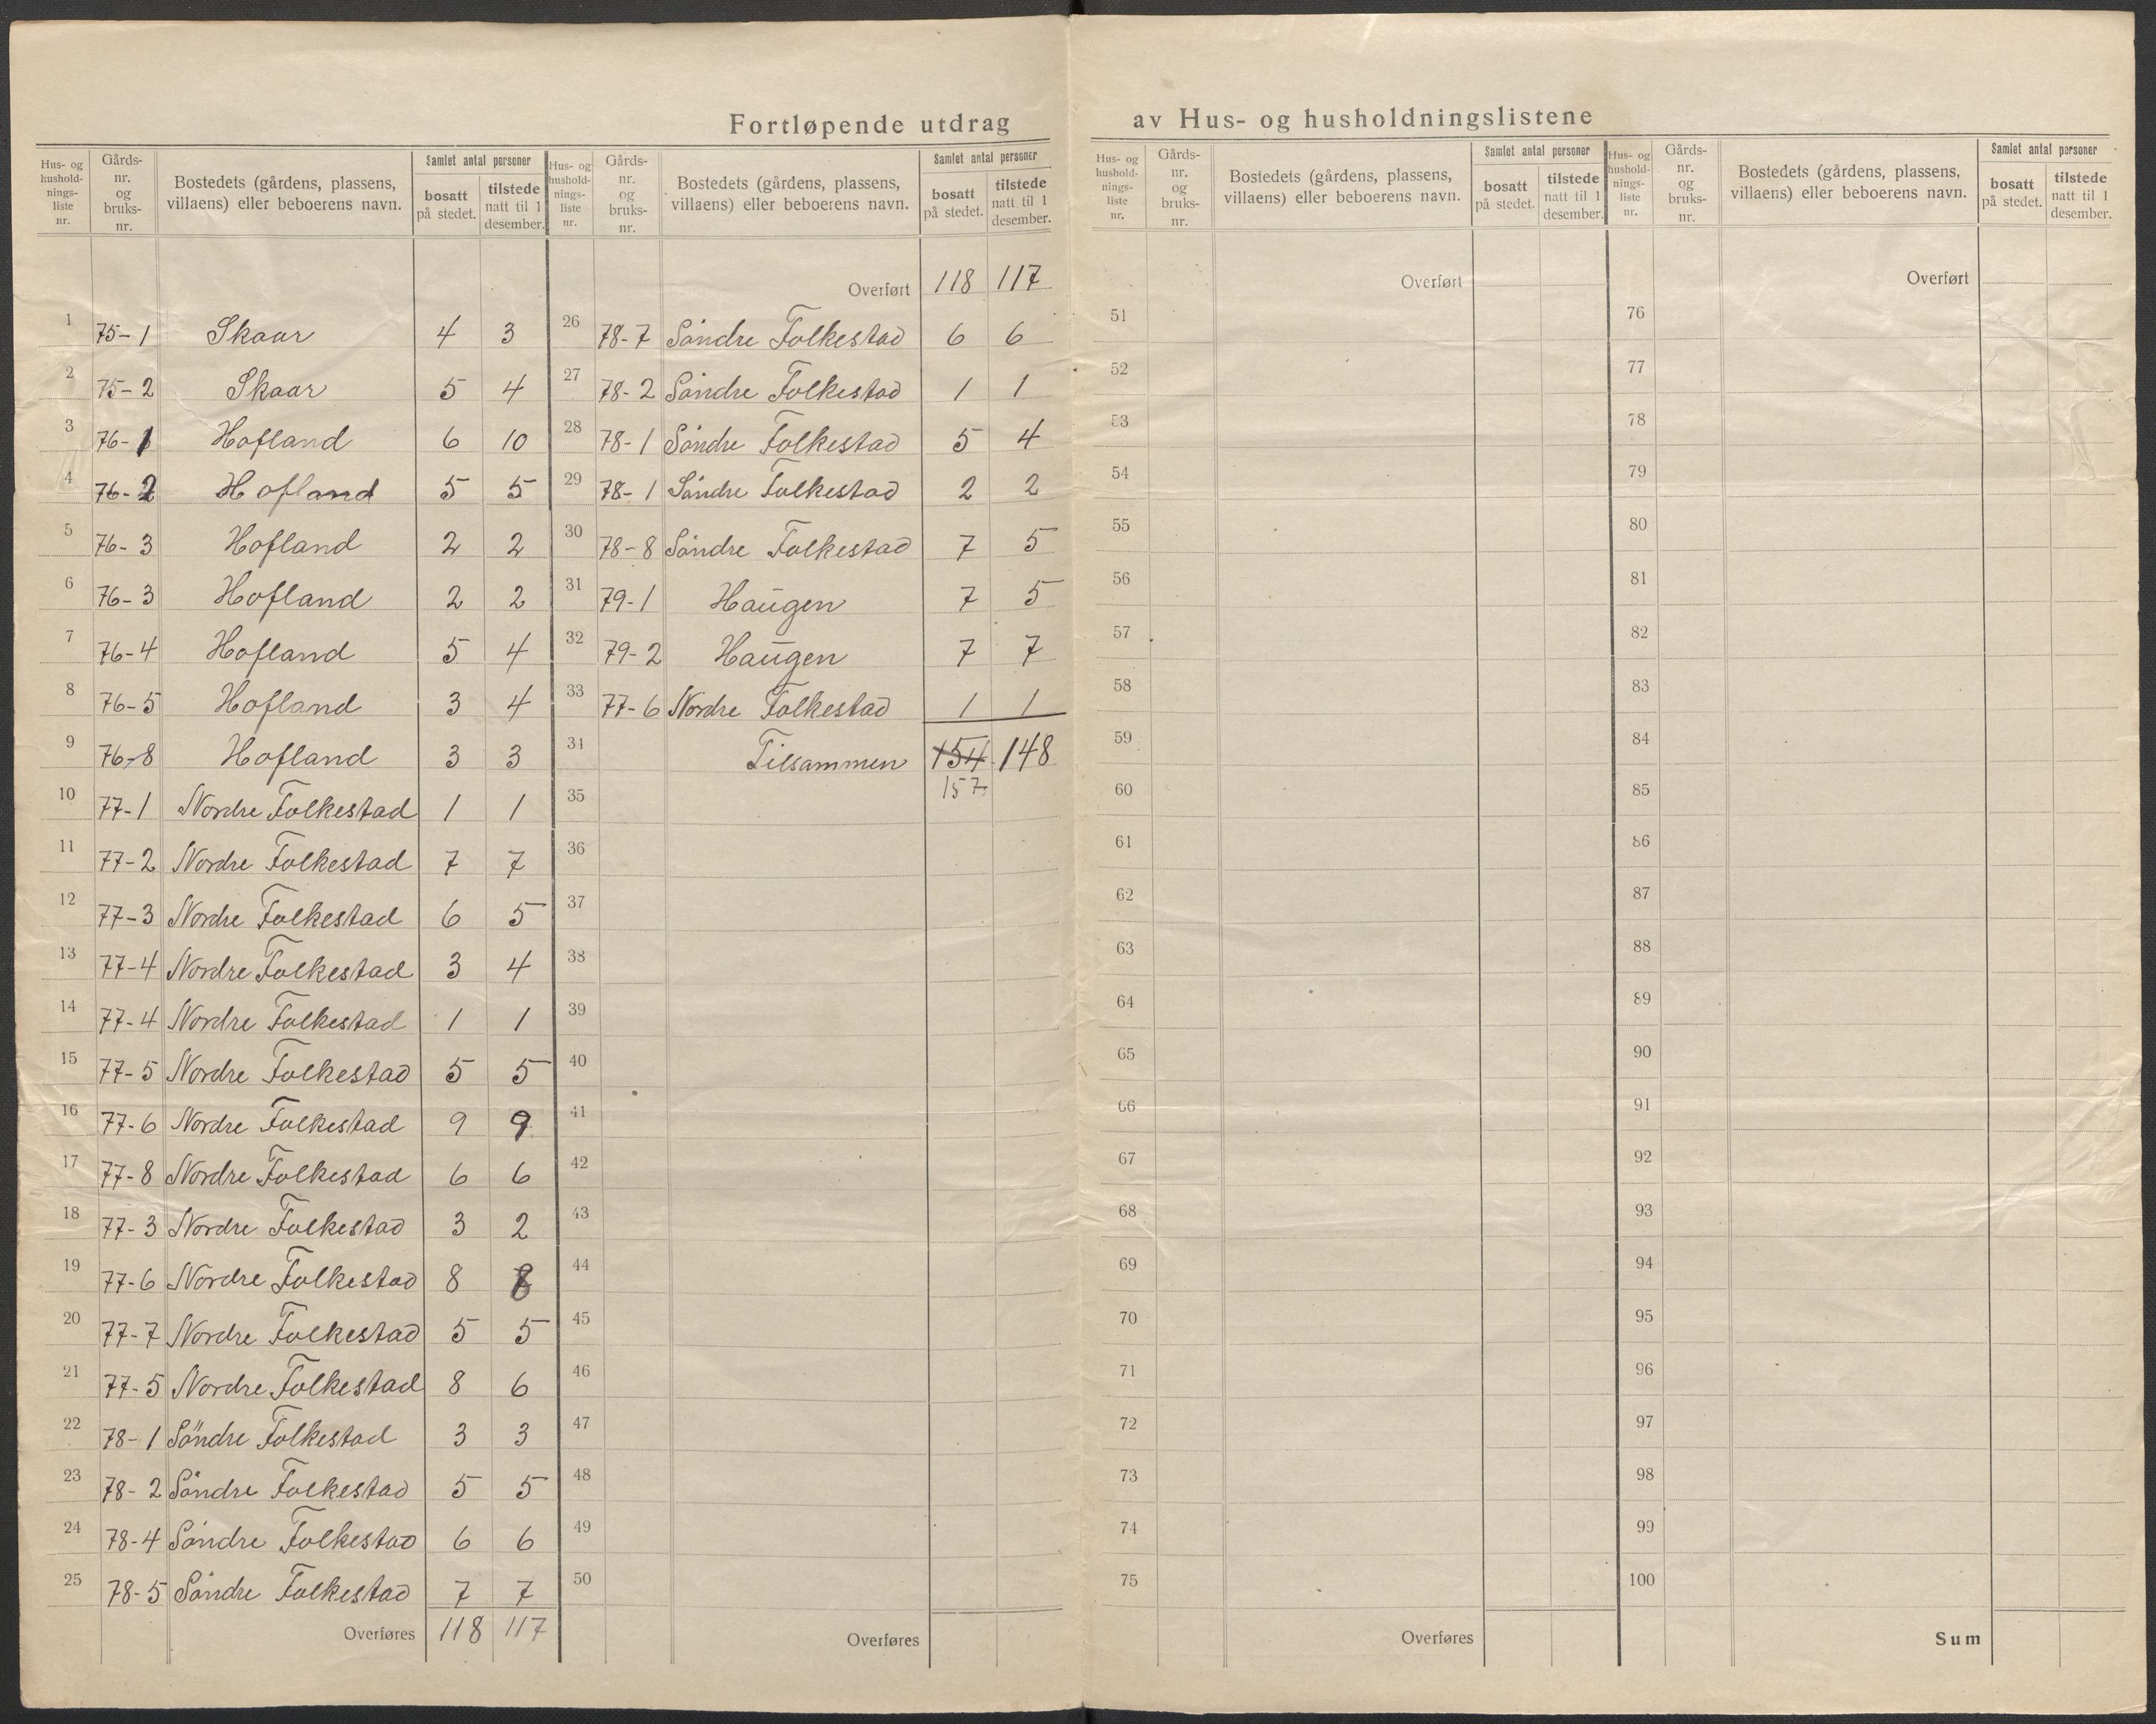 Fortløpende utdrag av Hus- og husholdningslistene
Hus- og husholdningsliste nr. | Gårds- nr. og bruks- nr. | Bostedets (gårdens, plassens, villaens) eller beboerens navn. | Samlet antal personer | bosatt på stedet. | tilstede natt til 1 desember.
1 75-1 Skaar 4 3
2 75-2 Skaar 5 4
3 76-1 Hofland 6 10
4 76-2 Hofland 5 5
5 76-3 Hofland 2 2
6 76-3 Hofland 2 2
7 76-4 Hofland 5 4
8 76-5 Hofland 3 4
9 76-8 Hofland 3 3
10 77-1 Nordre Folkestad 1 1
11 77-2 Nordre Folkestad 7 7
12 77-3 Nordre Folkestad 6 5
13 77-4 Nordre Folkestad 3 4
14 77-4 Nordre Folkestad 1 1
15 77-5 Nordre Folkestad 5 5
16 77-6 Nordre Folkestad 9 9
17 77-8 Nordre Folkestad 6 6
18 77-3 Nordre Folkestad 3 2
19 77-6 Nordre Folkestad 8 8
20 77-7 Nordre Folkestad 5 5
21 77-5 Nordre Folkestad 8 6
22 78-1 Söndre Folkestad 3 3
23 78-2 Söndre Folkestad 5 5
24 78-4 Söndre Folkestad 6 6
25 78-5 Söndre Folkestad 7 7
Overføres 118 117
Hus- og husholdningsliste nr. | Gårds- nr. og bruks- nr. | Bostedets (gårdens, plassens, villaens) eller beboerens navn. | Samlet antal personer | bosatt på stedet. | tilstede natt til 1 desember.
Overført 118 117
26 78-7 Söndre Folkestad 6 6
27 78-2 Söndre Folkestad 1 1
28 78-1 Söndre Folkestad 5 4
29 78-1 Söndre Folkestad 2 2
30 78-8 Söndre Folkestad 7 5
31 79-1 Haugen 7 5
32 79-2 Haugen 7 7
33 77-6 Nordre Folkestad 1 1
34 Tilsammen 154 148
157
35
36
37
38
39
40
41
42
43
44
45
46
47
48
49
50
Overføres
Hus- og husholdningsliste nr. | Gårds- nr. og bruks- nr. | Bostedets (gårdens, plassens, villaens) eller beboerens navn. | Samlet antal personer | bosatt på stedet. | tilstede natt til 1 desember.
Overført
51
52
53
54
55
56
57
58
59
60
61
62
63
64
65
66
67
68
69
70
71
72
73
74
75
Overføres
Hus- og husholdningsliste nr. | Gårds- nr. og bruks- nr. | Bostedets (gårdens, plassens, villaens) eller beboerens navn. | Samlet antal personer | bosatt på stedet. | tilstede natt til 1 desember.
Overført
76
77
78
79
80
81
82
83
84
85
86
87
88
89
90
91
92
93
94
95
96
97
98
99
100
Sum